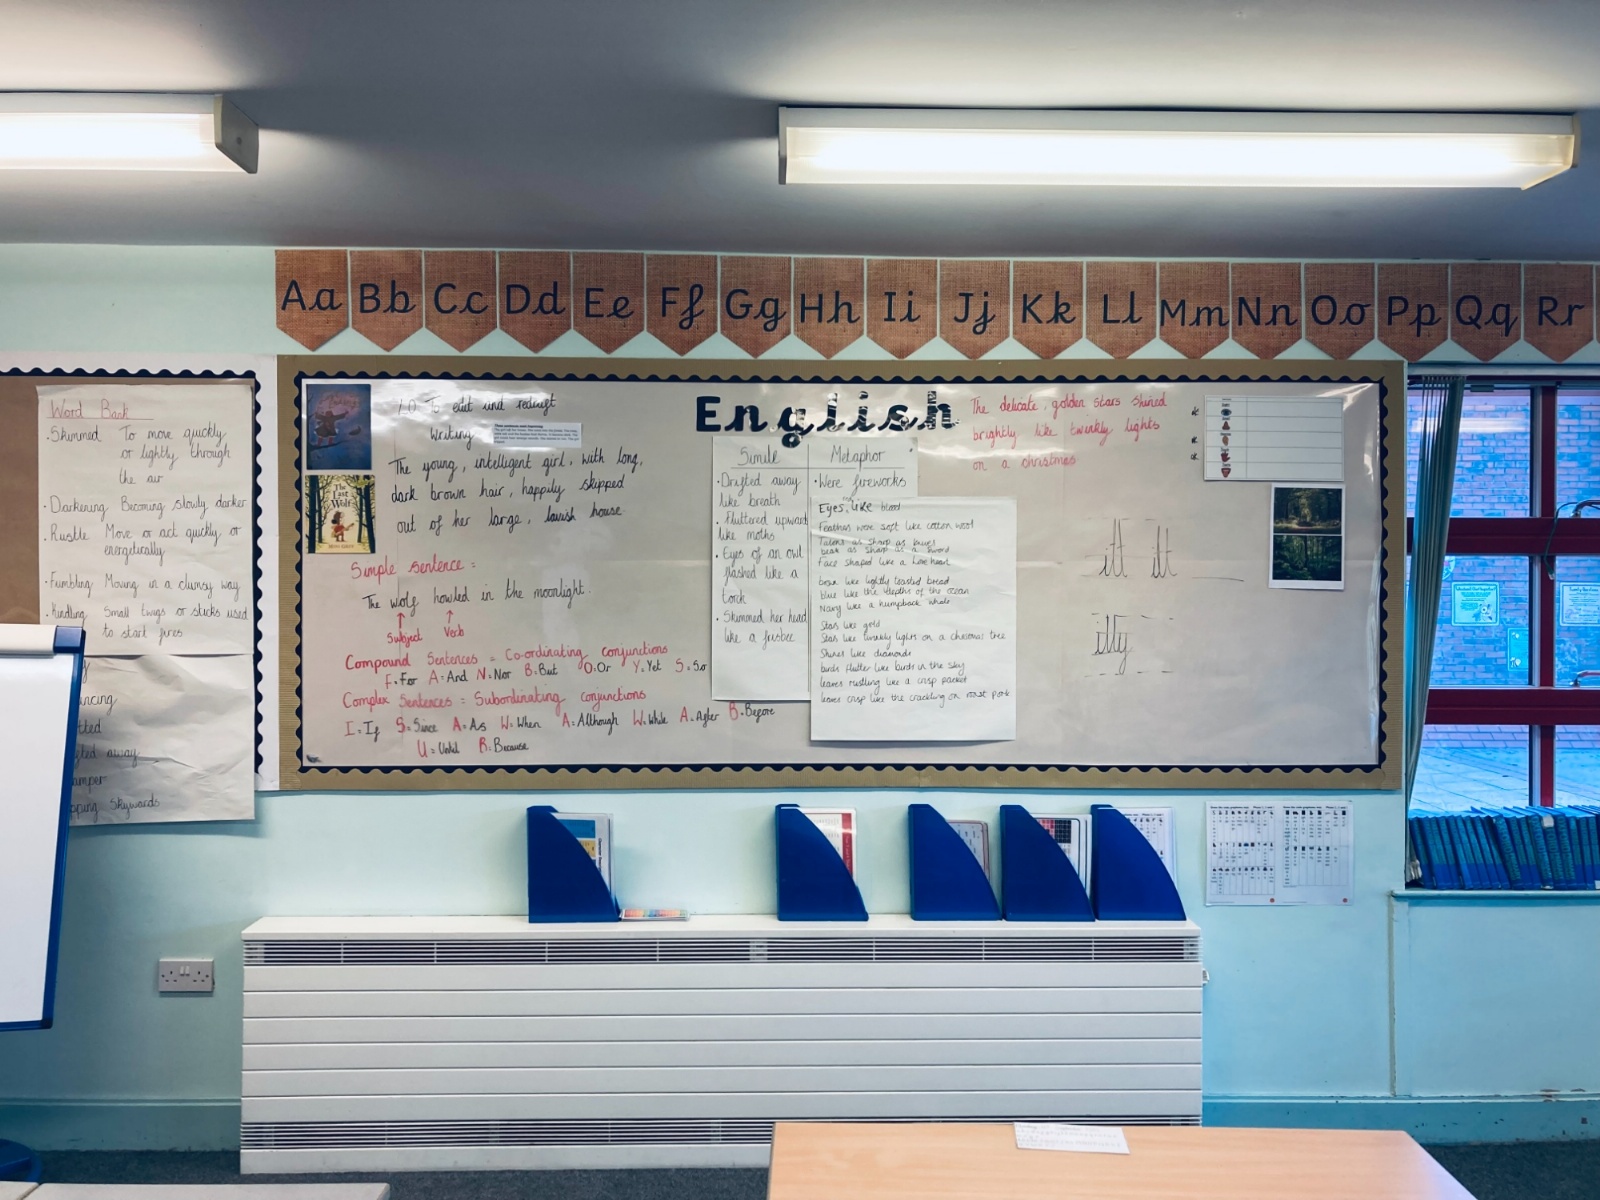 Aa Bb Cc Dd Ee Ff Gg Hh Ii Jj Kk Ll Mm Nn Oo Pp Qq Rr
Word Bank
· Skimmed To move quickly
or lightly through
the air
· Darkening Becoming slowly darker
· Rustle Move or act quickly or
energetically
· Fumbling Moving in a clumsy way
· Kindling Small twigs or sticks used
to start fires
away
Skywards
The Last
Wolf
To edit and redraft
Writing
The young, intelligent girl, with long,
dark brown hair, happily skipped
out of her large, lavish house.
Simple sentence =
The wolf howled in the moonlight.
Subject Verb
Compound Sentences = Co-ordinating conjunctions
F=For A=And N=Nor B=But O=Or Y=Yet S=So
Complex Sentences = Subordinating conjunctions
I=If S=Since A=As W=When A=Although W=While A=After B=Before
U=Until B=Because
English
Simile
· Drifted away
like breath
· Fluttered upward
like moths
· Eyes of an owl
flashed like a
torch
· Skimmed her head
like a frisbee
Metaphor
· Were fireworks
Eyes, like blood
Feathers were soft like cotton wool
Talons as sharp as knives
beak as sharp as a sword
Face shaped like a love heart
brown like lightly toasted bread
blue like the depths of the ocean
Navy like a humpback whale
Stars like gold
Stars like twinkly lights on a christmas tree
Shines like diamonds
birds flutter like birds in the sky
leaves rustling like a crisp packet
leaves crisp like the crackling on roast pork
The delicate, golden stars shined
brightly like twinkly lights
on a christmas
itt itt
itty